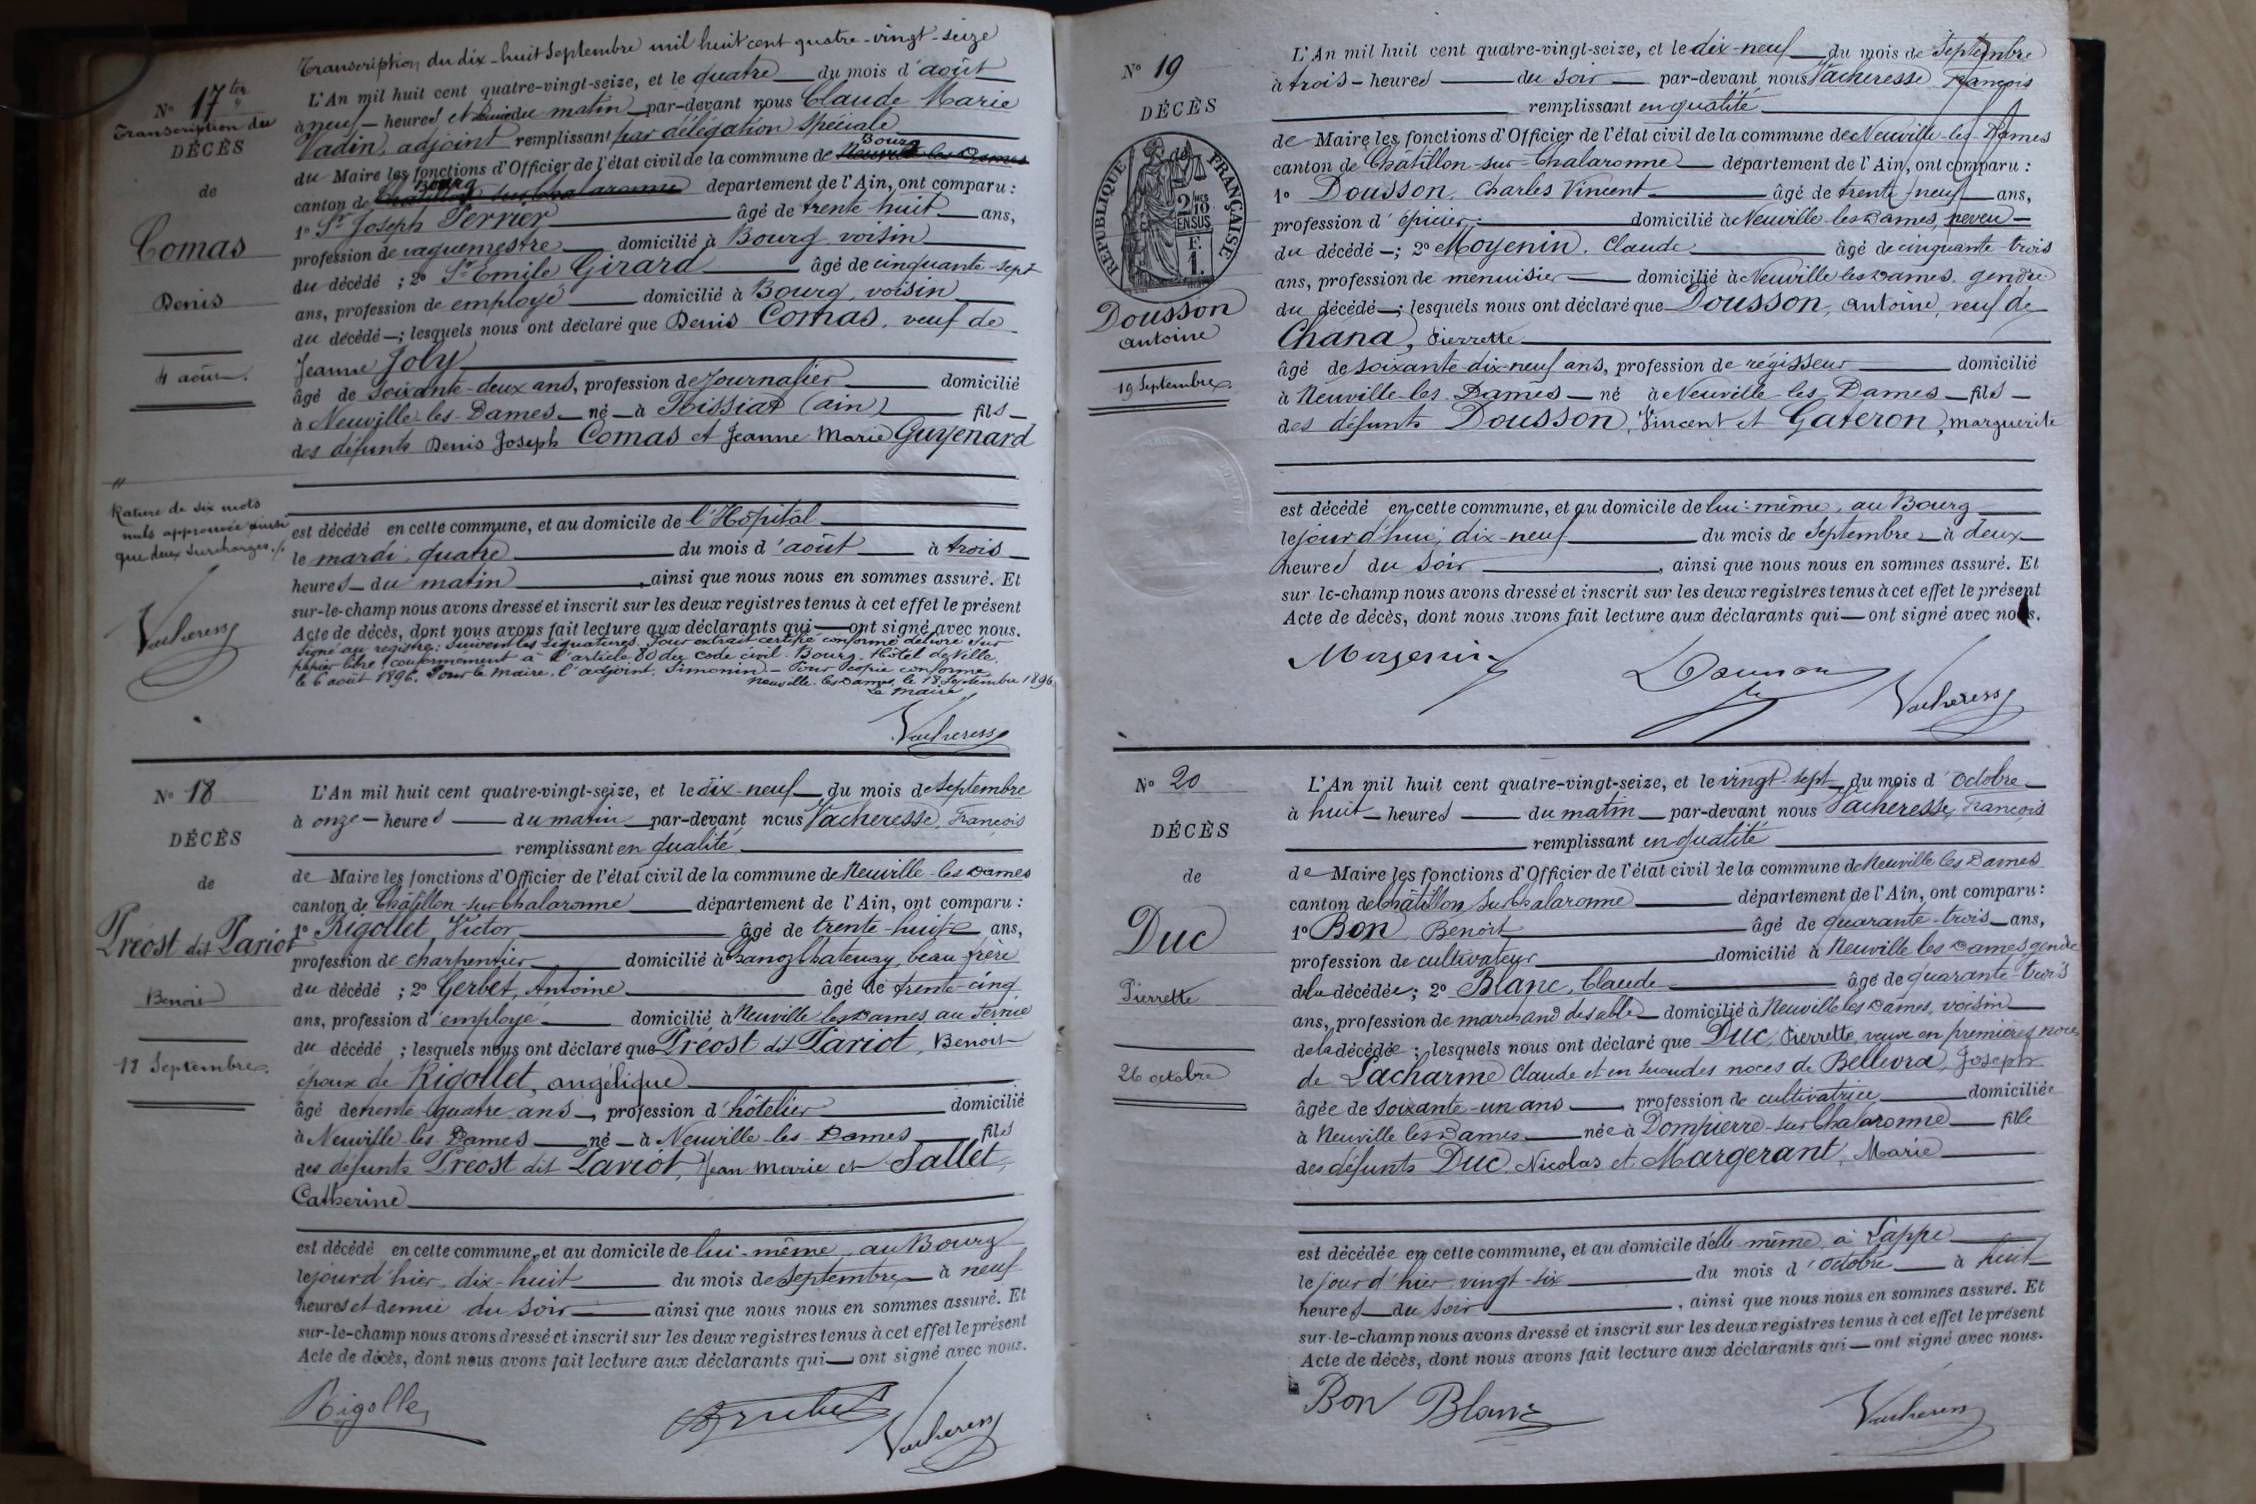 Transcription du dix-huit Septembre mil huit cent quatre-vingt-seize
N° 17 ter
Transcription du
DÉCÈS
de
Comas
Denis
4 août.
Rature de six mots
nuls approuvée ainsi
que deux surcharges.
Vacheresse
L'An mil huit cent quatre-vingt-seize, et le quatre du mois d'août
à neuf heures et du matin par-devant nous Claude Marie
Vadin, adjoint remplissant par délégation spéciale
du Maire les fonctions d'Officier de l'état civil de la commune de Neuville-les-Dames Bourg
canton de Châtillon-sur-Chalaronne Bourg département de l'Ain, ont comparu :
1° Sr Joseph Perrier âgé de trente huit ans,
profession de vaguemestre domicilié à Bourg, voisin
du décédé ; 2° Sr Emile Girard âgé de cinquante-sept
ans, profession de employé domicilié à Bourg, voisin
du décédé ; lesquels nous ont déclaré que Denis Comas, veuf de
Jeanne Joly
âgé de soixante-deux ans, profession de Journalier domicilié
à Neuville-les-Dames né à Treissiat (ain) fils
des défunts Denis Joseph Comas et Jeanne Marie Guyenard
est décédé en cette commune, et au domicile de l'Hôpital
le mardi, quatre du mois d'août à trois
heures du matin, ainsi que nous nous en sommes assuré. Et
sur-le-champ nous avons dressé et inscrit sur les deux registres tenus à cet effet le présent
Acte de décès, dont nous avons fait lecture aux déclarants qui ont signé avec nous.
Signé au registre : Suivent les signatures. Pour extrait certifié conforme délivré sur
papier libre conformément à l'article 80 du code civil. Bourg, Hôtel de Ville,
le 6 août 1896. Pour le Maire, l'adjoint, Simonin. Pour copie conforme
Neuville-les-Dames, le 18 Septembre 1896.
Le Maire,
Vacheresse
N° 18
DÉCÈS
de
Préost dit Pariot
Benoit
18 Septembre.
L'An mil huit cent quatre-vingt-seize, et le dix-neuf du mois de Septembre
à onze heures du matin par-devant nous Vacheresse, François
remplissant en qualité
de Maire les fonctions d'Officier de l'état civil de la commune de Neuville-les-Dames
canton de Châtillon-sur-Chalaronne département de l'Ain, ont comparu :
1° Rigollet, Victor âgé de trente-huit ans,
profession de charpentier domicilié à Chanoz Chatenay, beau-frère
du décédé ; 2° Gerbet, Antoine âgé de trente-cinq
ans, profession d'employé domicilié à Neuville les Dames, au
du décédé ; lesquels nous ont déclaré que Préost dit Pariot, Benoit
époux de Rigollet, angélique
âgé de trente quatre ans, profession d'hôtelier domicilié
à Neuville-les-Dames né à Neuville-les-Dames fils
des défunts Préost dit Pariot, Jean Marie et Sallet,
Catherine
est décédé en cette commune, et au domicile de lui-même, au Bourg
le jour d'hier, dix-huit du mois de Septembre à neuf
heures et demie du soir ainsi que nous nous en sommes assuré. Et
sur-le-champ nous avons dressé et inscrit sur les deux registres tenus à cet effet le présent
Acte de décès, dont nous avons fait lecture aux déclarants qui ont signé avec nous.
Rigollet Vacheresse
N° 19
DÉCÈS
RÉPUBLIQUE FRANÇAISE
2/10 MES
EN SUS
F.
1.
Dousson
Antoine
19 Septembre.
L'An mil huit cent quatre-vingt-seize, et le dix-neuf du mois de Septembre
à trois heures du soir par-devant nous Vacheresse François
remplissant en qualité
de Maire les fonctions d'Officier de l'état civil de la commune de Neuville-les-Dames
canton de Châtillon-sur-Chalaronne département de l'Ain, ont comparu :
1° Dousson, Charles Vincent âgé de trente neuf ans,
profession d'épicier, domicilié à Neuville-les-Dames, neveu
du décédé ; 2° Moyenin, Claude âgé de cinquante trois
ans, profession de menuisier domicilié à Neuville les Dames, gendre
du décédé ; lesquels nous ont déclaré que Dousson, Antoine, veuf de
Chana, Pierrette
âgé de soixante-dix-neuf ans, profession de régisseur domicilié
à Neuville-les-Dames né à Neuville-les-Dames fils
des défunts Dousson, Vincent et Gateron, Marguerite
est décédé en cette commune, et au domicile de lui-même, au Bourg
le jour d'hui, dix-neuf du mois de Septembre à deux
heures du soir, ainsi que nous nous en sommes assuré. Et
sur-le-champ nous avons dressé et inscrit sur les deux registres tenus à cet effet le présent
Acte de décès, dont nous avons fait lecture aux déclarants qui ont signé avec nous.
Moyenin Dousson Vacheresse
N° 20
DÉCÈS
de
Duc
Pierrette
26 octobre
L'An mil huit cent quatre-vingt-seize, et le vingt-sept du mois d'octobre
à huit heures du matin par-devant nous Vacheresse, François
remplissant en qualité
de Maire les fonctions d'Officier de l'état civil de la commune de Neuville les Dames
canton de Châtillon sur Chalaronne département de l'Ain, ont comparu :
1° Bon, Benoit âgé de quarante-trois ans,
profession de cultivateur domicilié à Neuville les Dames gendre
de la décédée ; 2° Blanc, Claude âgé de quarante-trois
ans, profession de marchand de sable domicilié à Neuville les Dames, voisin
de la décédée ; lesquels nous ont déclaré que Duc, Pierrette, veuve en premières noces
de Lacharme Claude et en secondes noces de Bellevra, Joseph
âgée de soixante-un ans, profession de cultivatrice domiciliée
à Neuville les Dames née à Dompierre-sur-Chalaronne fille
des défunts Duc, Nicolas et Margerant, Marie
est décédée en cette commune, et au domicile d'elle-même, à Lappe
le jour d'hier, vingt-six du mois d'octobre à huit
heures du soir, ainsi que nous nous en sommes assuré. Et
sur-le-champ nous avons dressé et inscrit sur les deux registres tenus à cet effet le présent
Acte de décès, dont nous avons fait lecture aux déclarants qui ont signé avec nous.
Bon Blanc Vacheresse